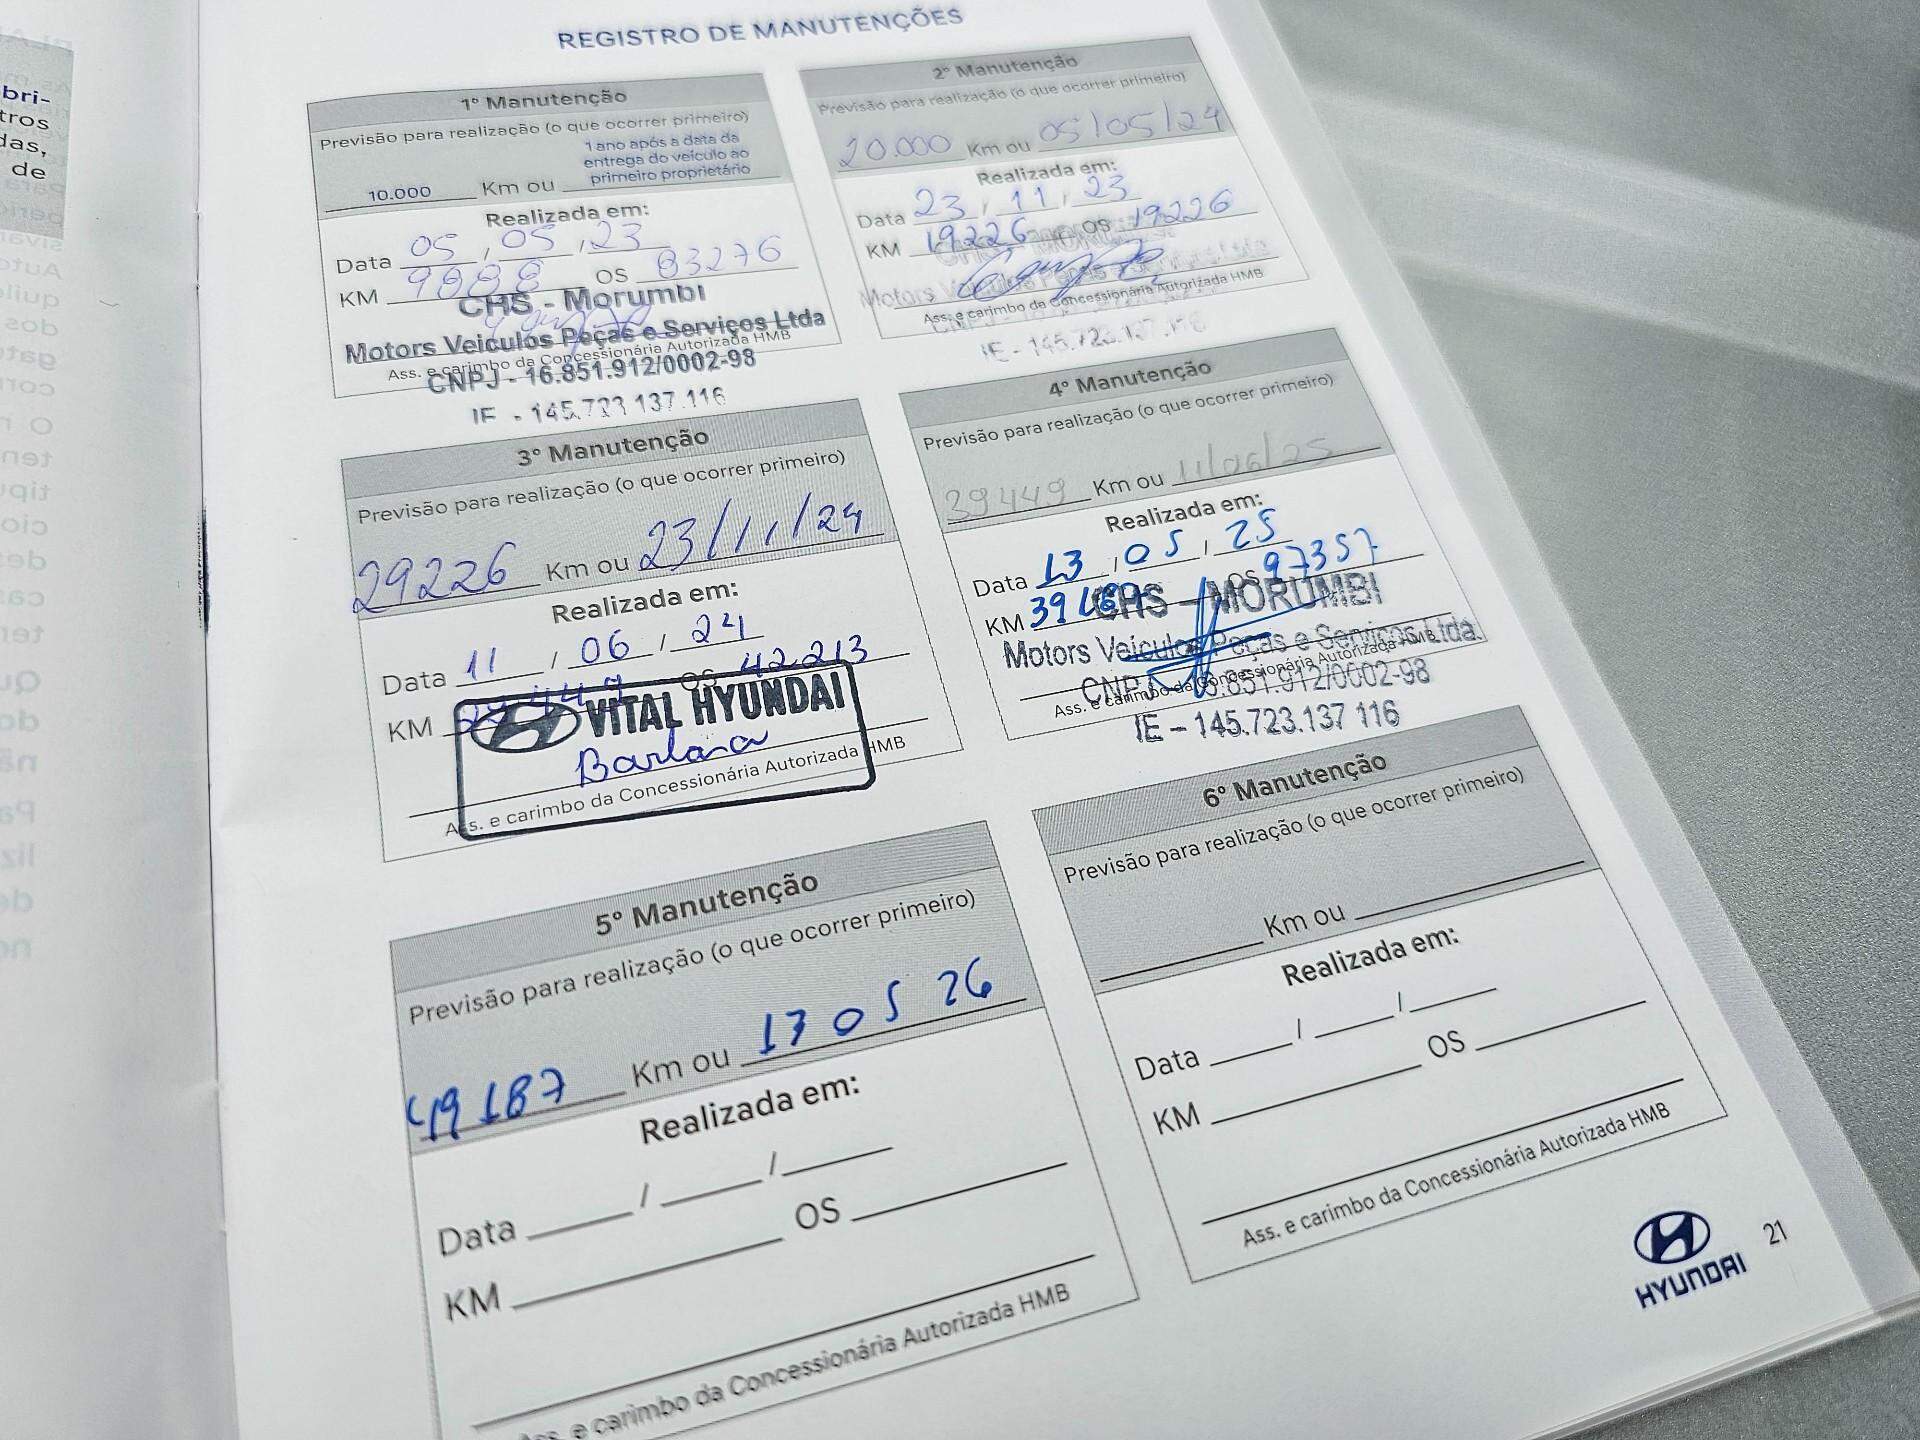 bri-
tros
das,
de
REGISTRO DE MANUTENÇÕES
1º Manutenção
Previsão para realização (o que ocorrer primeiro)
1 ano após a data da
entrega do veículo ao
primeiro proprietário
10.000 Km ou
Realizada em:
Data 05 / 05 / 23
KM 9888 OS 83276
CHS - Morumbi
Motors Veiculos Peças e Serviços Ltda
Ass. e carimbo da Concessionária Autorizada HMB
CNPJ - 16.851.912/0002-98
IE - 145.723 137 116
2º Manutenção
Previsão para realização (o que ocorrer primeiro)
20.000 Km ou 05/05/24
Realizada em:
Data 23 / 11 / 23
KM 19226 OS 19226
Motors Veiculos Peças e Serviços Ltda
Ass. e carimbo da Concessionária Autorizada HMB
IE - 145.723.137.116
3º Manutenção
Previsão para realização (o que ocorrer primeiro)
29226 Km ou 23/11/24
Realizada em:
Data 11 / 06 / 24
KM OS 42213
VITAL HYUNDAI
Ass. e carimbo da Concessionária Autorizada HMB
4º Manutenção
Previsão para realização (o que ocorrer primeiro)
39449 Km ou 11/06/25
Realizada em:
Data 13 / 05 / 25
KM 39187 OS 97357
CHS - MORUMBI
Motors Veículos Peças e Serviços Ltda.
Ass. e carimbo da Concessionária Autorizada HMB
CNPJ - 16.851.912/0002-98
IE - 145.723.137 116
5º Manutenção
Previsão para realização (o que ocorrer primeiro)
49187 Km ou 13 05 26
Realizada em:
Data / /
KM OS
Ass. e carimbo da Concessionária Autorizada HMB
6º Manutenção
Previsão para realização (o que ocorrer primeiro)
Km ou
Realizada em:
Data / /
KM OS
Ass. e carimbo da Concessionária Autorizada HMB
HYUNDAI
21